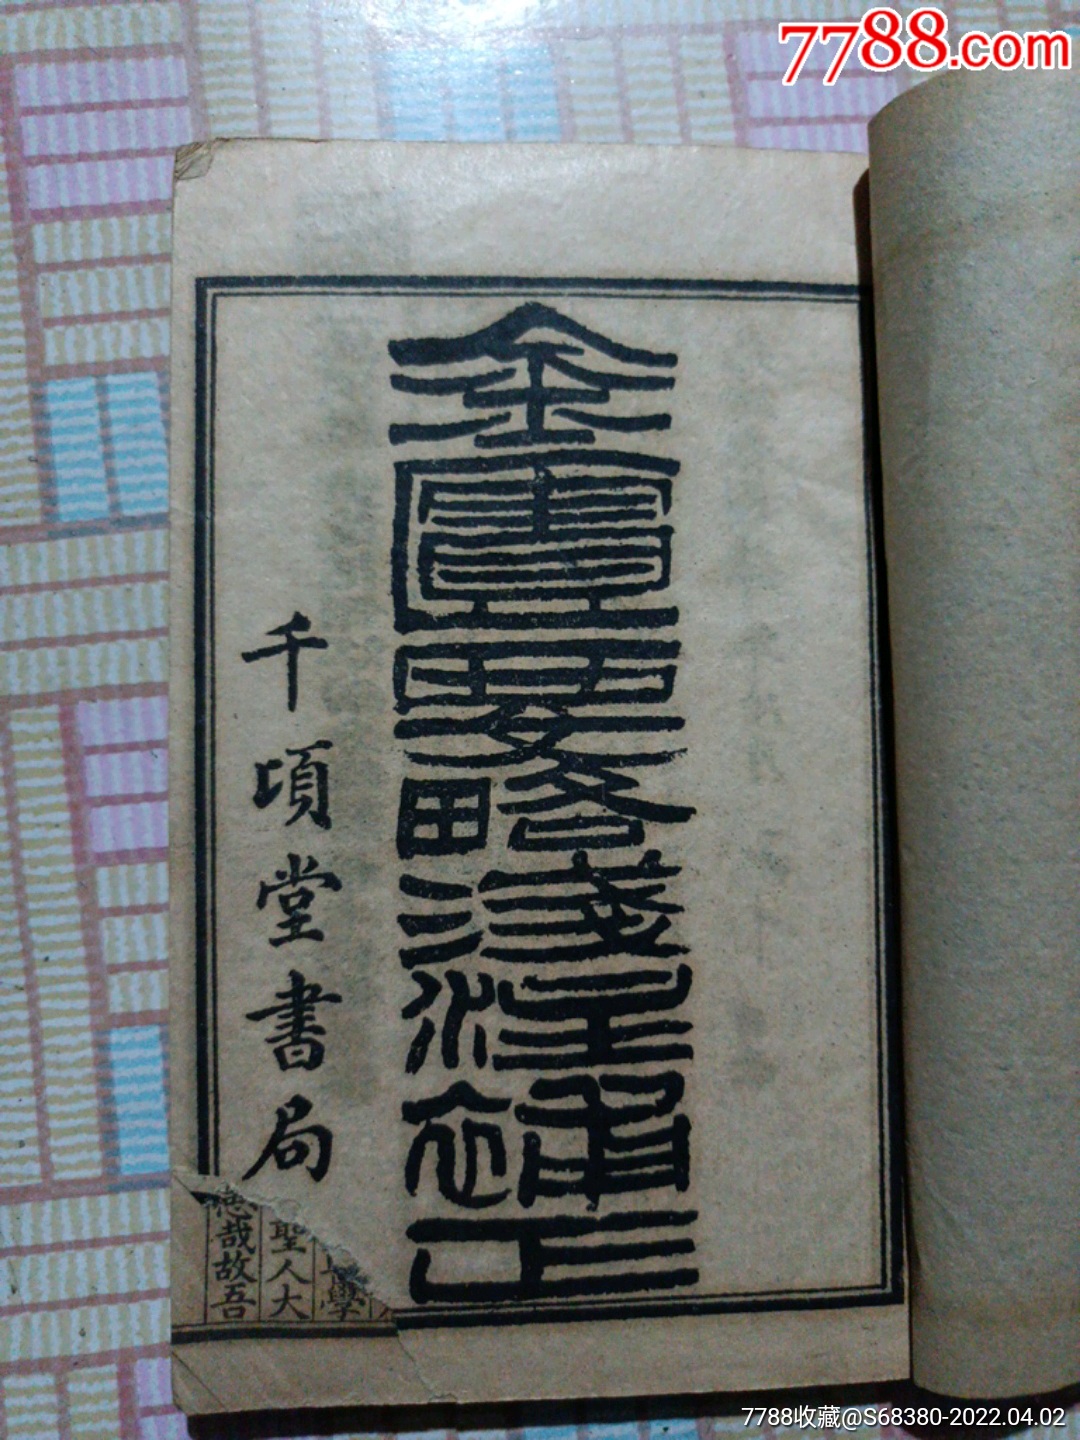 7788.com
金匱要略淺注補正
千頃堂書局
學
聖人大
哉故吾
7788收藏@S68380-2022.04.02